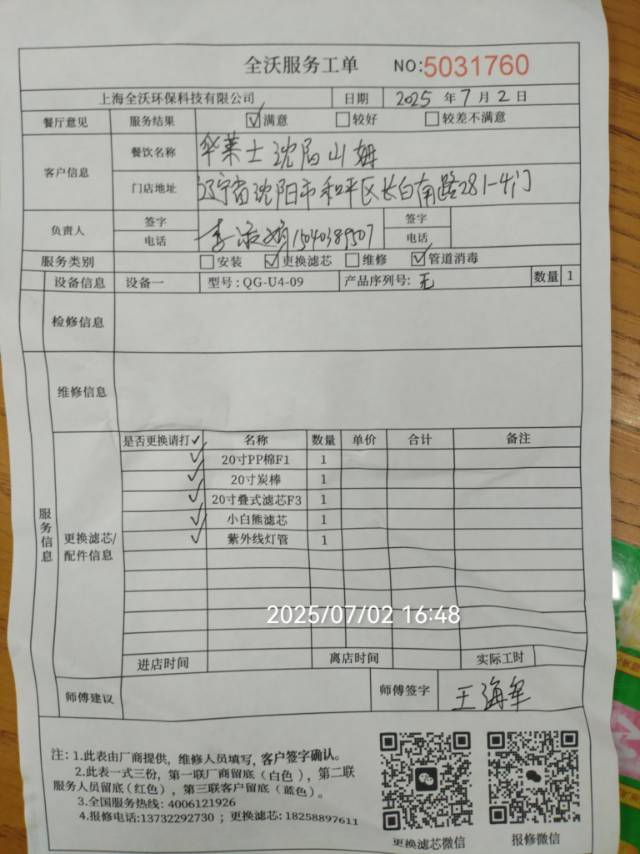 全沃服务工单 NO:5031760
上海全沃环保科技有限公司 日期 2025 年 7 月 2 日
餐厅意见 服务结果 ☑满意 □较好 □较差不满意
客户信息 餐饮名称 华莱士沈阳山姆
门店地址 辽宁省沈阳市和平区长白南路281-4门
负责人 签字 李 签字
电话 电话
服务类别 □安装 ☑更换滤芯 □维修 ☑管道消毒
设备信息 设备一 型号:QG-U4-09 产品序列号: 无 数量 1
检修信息
维修信息
服务信息
更换滤芯/配件信息
是否更换请打✓ 名称 数量 单价 合计 备注
✓ 20寸PP棉F1 1
✓ 20寸炭棒 1
✓ 20寸叠式滤芯F3 1
✓ 小白熊滤芯 1
✓ 紫外线灯管 1
2025/07/02 16:48
进店时间 离店时间 实际工时
师傅建议 师傅签字 王海军
注：1.此表由厂商提供，维修人员填写，客户签字确认。
2.此表一式三份，第一联厂商留底（白色），第二联
服务人员留底（红色），第三联客户留底（蓝色）。
3.全国服务热线: 4006121926
4.报修电话:13732292730 ；更换滤芯: 18258897611
更换滤芯微信 报修微信